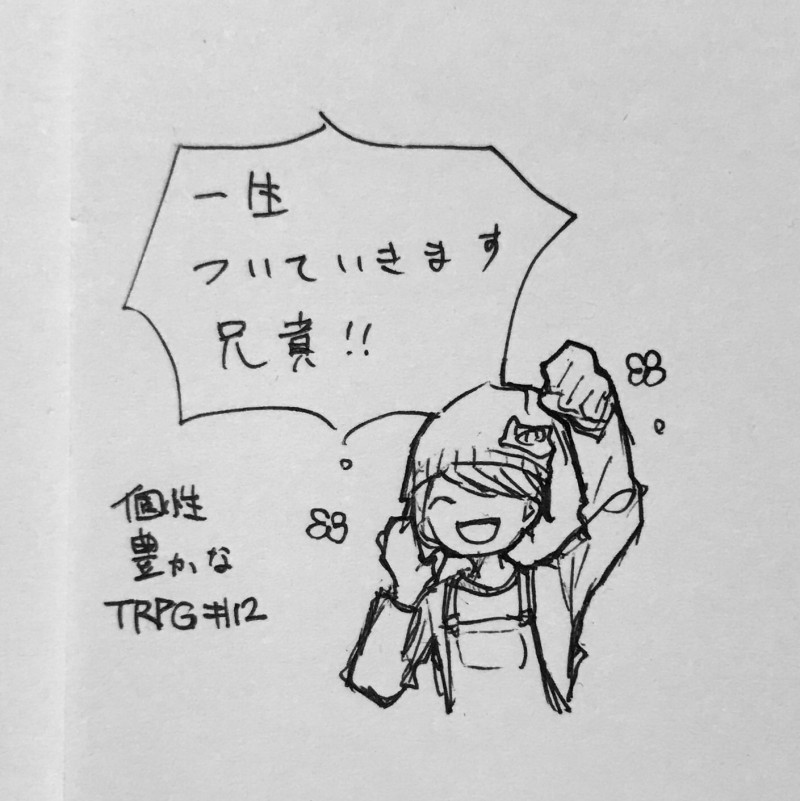 一生
ついていきます
兄貴!!
個性
豊かな
TRPG#12